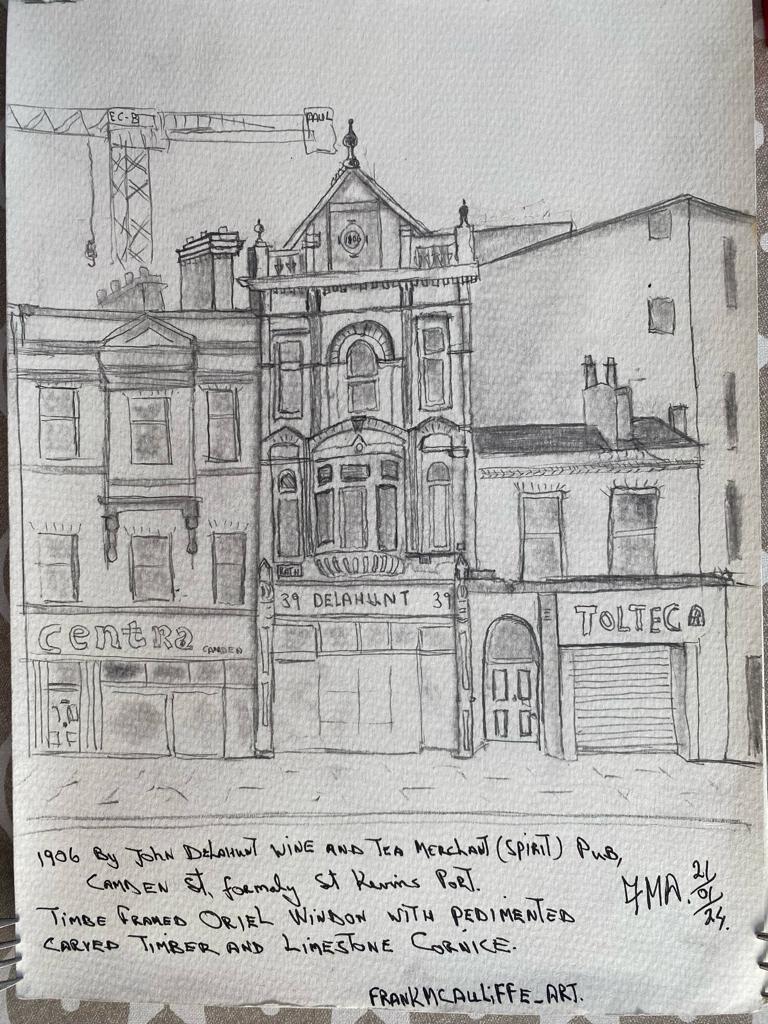 EC-B
PAUL
centra CAMDEN
39 DELAHUNT 39
TOLTECA
1906 By John Delahunt Wine and Tea Merchant (Spirit) Pub,
Camden St, formaly St Kevins Port.
Timbe Framed Oriel Window with Pedimented
Carved Timber and Limestone Cornice.
FMA. 21/01/24.
FRANKMCAULIFFE_ART.